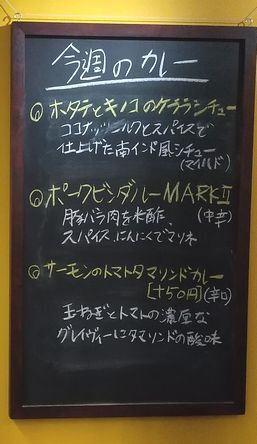 今週のカレー
◎ホタテとキノコのケララシチュー
ココナッツミルクとスパイスで
仕上げた南インド風シチュー
(マイルド)
◎ポークビンダルーMARKⅡ
豚バラ肉を米酢、(中辛)
スパイス、にんにくでマリネ
◎サーモンのトマトタマリンドカレー
[+50円](辛口)
玉ねぎとトマトの濃厚な
グレイヴィーにタマリンドの酸味